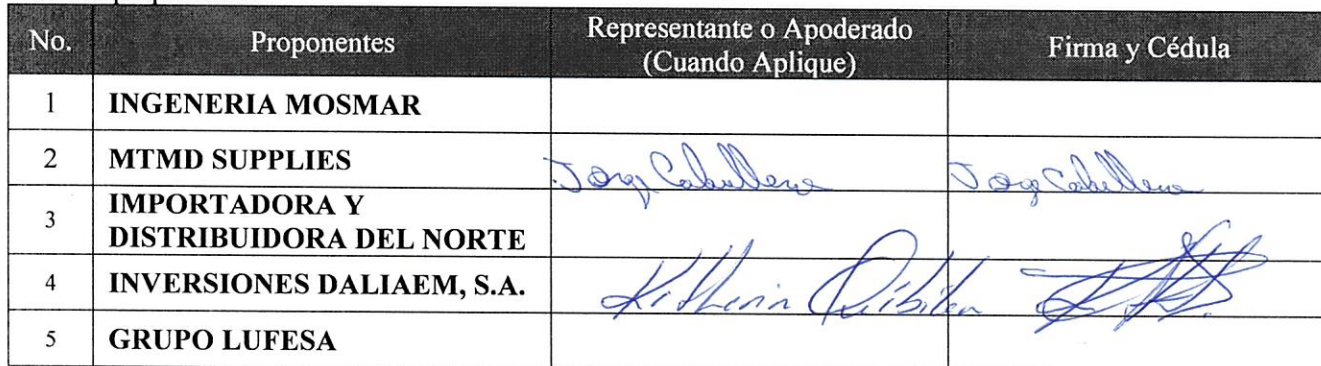 No. Proponentes Representante o Apoderado (Cuando Aplique) Firma y Cédula
1 INGENERIA MOSMAR
2 MTMD SUPPLIES Jorge Caballero Jorge Caballero
3 IMPORTADORA Y
DISTRIBUIDORA DEL NORTE
4 INVERSIONES DALIAEM, S.A. Katherin
5 GRUPO LUFESA